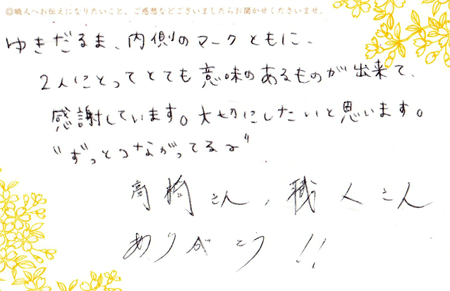 ◎職人へお伝えになりたいこと、ご感想などございましたらお聞かせくださいませ。
ゆきだるま、内側のマークともに、
2人にとってとても意味のあるものが出来て、
感謝しています。大切にしたいと思います。
"ずっとつながってるよ"
高橋さん、職人さん
ありがとう!!